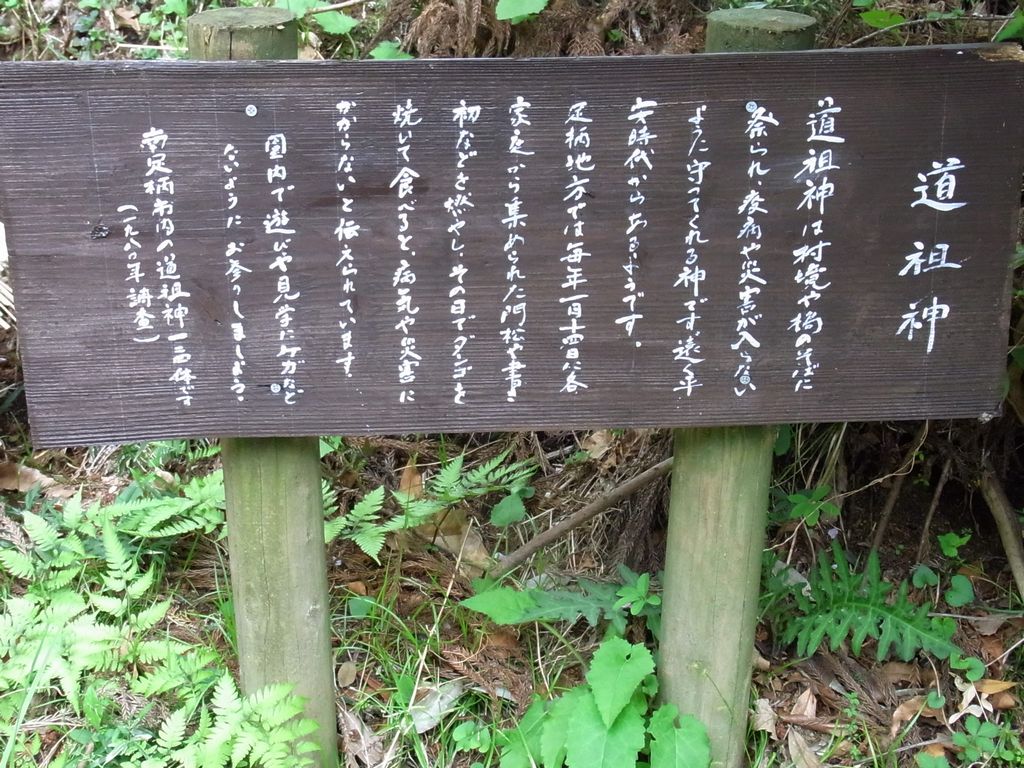 道祖神
道祖神は村境や橋のそばに
祭られ、疫病や災害が入らない
ように守ってくれる神です。遠く平
安時代からあるようです。
足柄地方では毎年一月十四日に各
家庭から集められた門松や書き
初などを燃やし、その日でダンゴを
焼いて食べると、病気や災害に
かからないと伝えられています
園内で遊びや見学にケガなど
ないようにお参りしましょう。
南足柄市内の道祖神一一三体です
(一九八〇年調査)